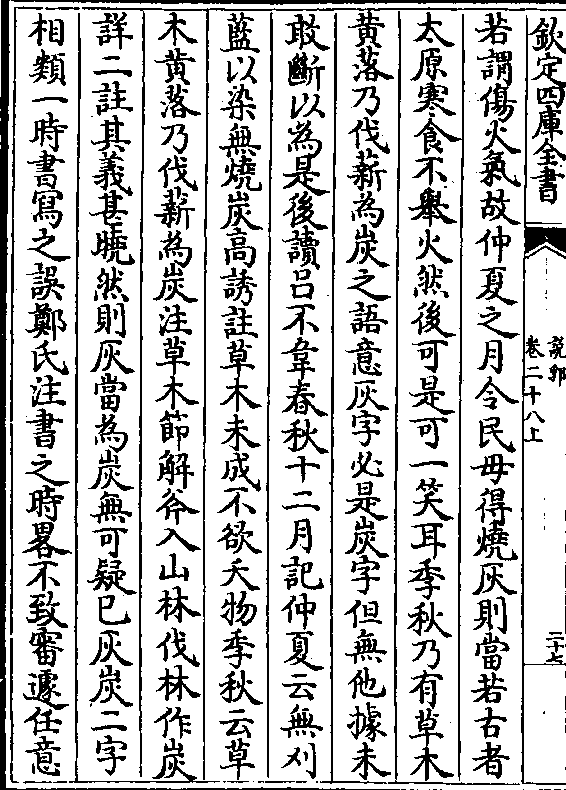 欽定四庫全書
說郛
卷二十八上
二十七
若謂傷火氣故仲夏之月令民毋得燒灰則當若古者
太原寒食不舉火然後可是可一笑耳季秋乃有草木
黄落乃伐薪為炭之語意灰字必是炭字但無他據未
敢斷以為是後讀吕不韋春秋十二月記仲夏云無刈
藍以染無燒炭高誘註草木未成不欲夭物季秋云草
木黄落乃伐薪為炭注草木節解斧入山林伐林作炭
詳二註其義甚曉然則灰當為炭無可疑已灰炭二字
相類一時書寫之誤鄭氏注書之時畧不致審遽任意